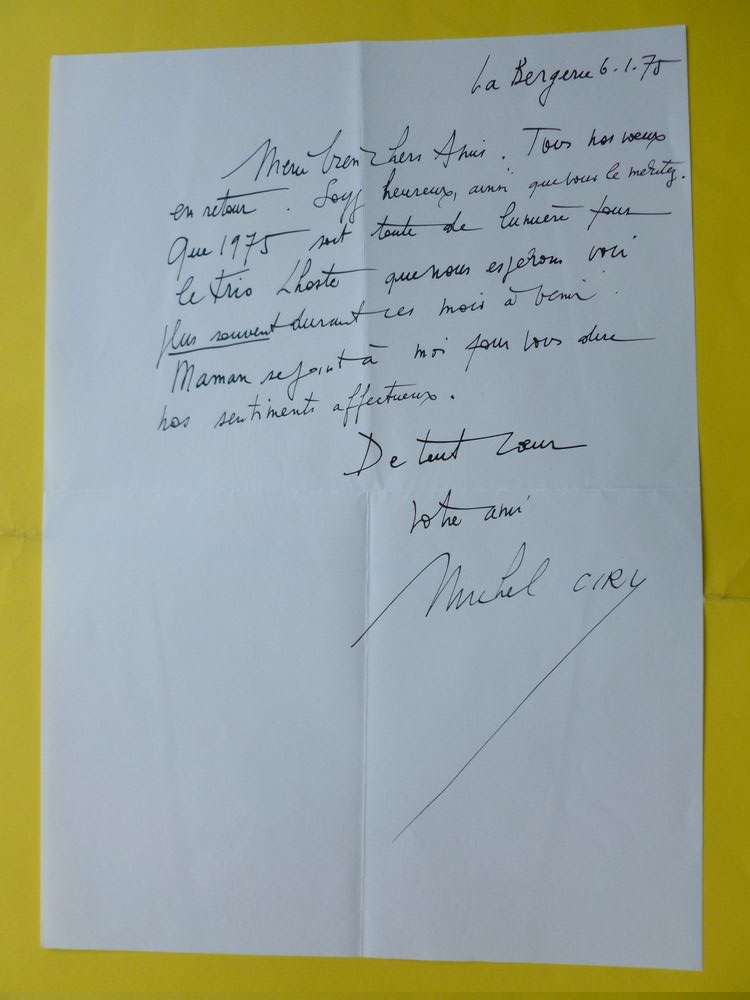 La Bergerie 6.1.75
Merci bien chers Amis. Tous nos voeux
en retour. Soyez heureux, ainsi que vous le méritez.
Que 1975 soit toute de lumière pour
le trio Lhoste que nous espérons voir
plus souvent durant ces mois à venir.
Maman se joint à moi pour vous dire
nos sentiments affectueux.
De tout coeur
votre ami
Michel CIRY